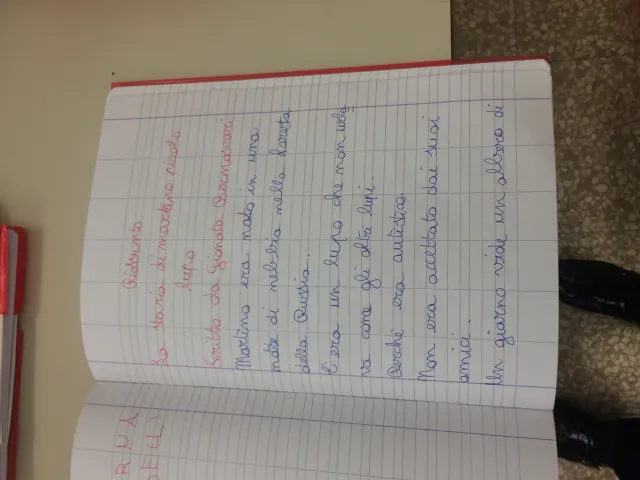 Riassunto
La storia di martino piccolo
lupo
Scritto da Gionata Bernasconi
Martino era nato in una
notte di nebbia nella foresta
della Russia.
C'era un lupo che non ulula
va come gli altri lupi.
Perché era autistico.
Non era accettato dai suoi
amici.
Un giorno vide un albero di